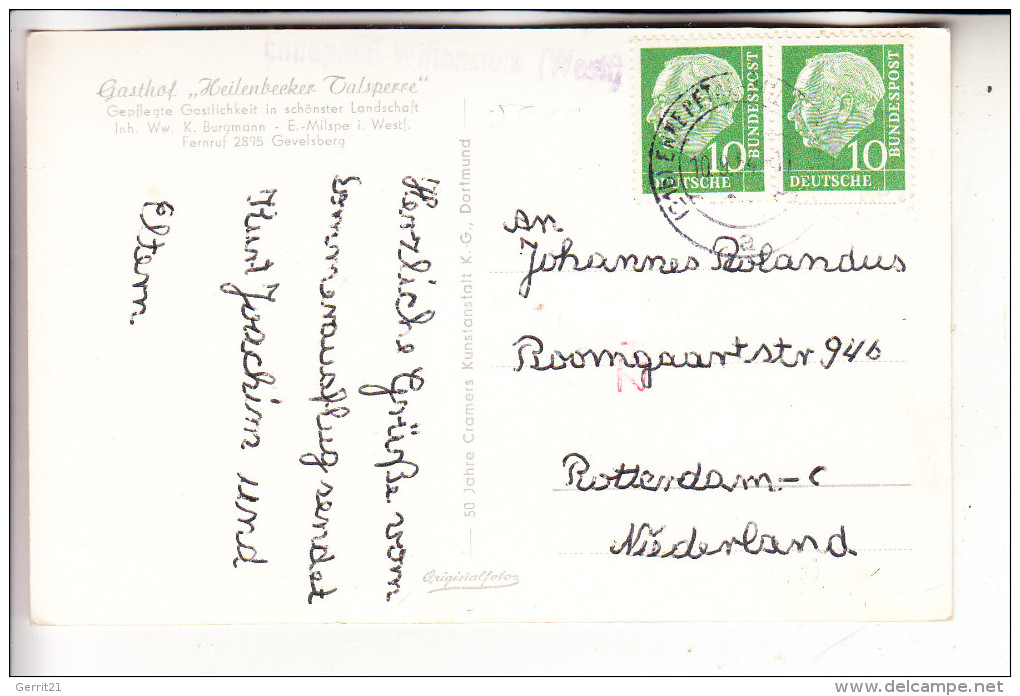 Gasthof „Heilenbecker Talsperre“
Gepflegte Gastlichkeit in schönster Landschaft
Inh. Ww. K. Burgmann - E.-Milspe i. Westf.
Fernruf 2895 Gevelsberg
Herzliche Grüße vom
Sommerausflug sendet
Joachim und
Eltern.
50 Jahre Cramers Kunstanstalt K.-G., Dortmund
Originalfoto
10
DEUTSCHE
BUNDESPOST
10
DEUTSCHE
BUNDESPOST
a
An
Johannes Rolandus
Roomgaartstr 94b
Rotterdam-C
Niederland
Gerrit21
www.delcampe.net